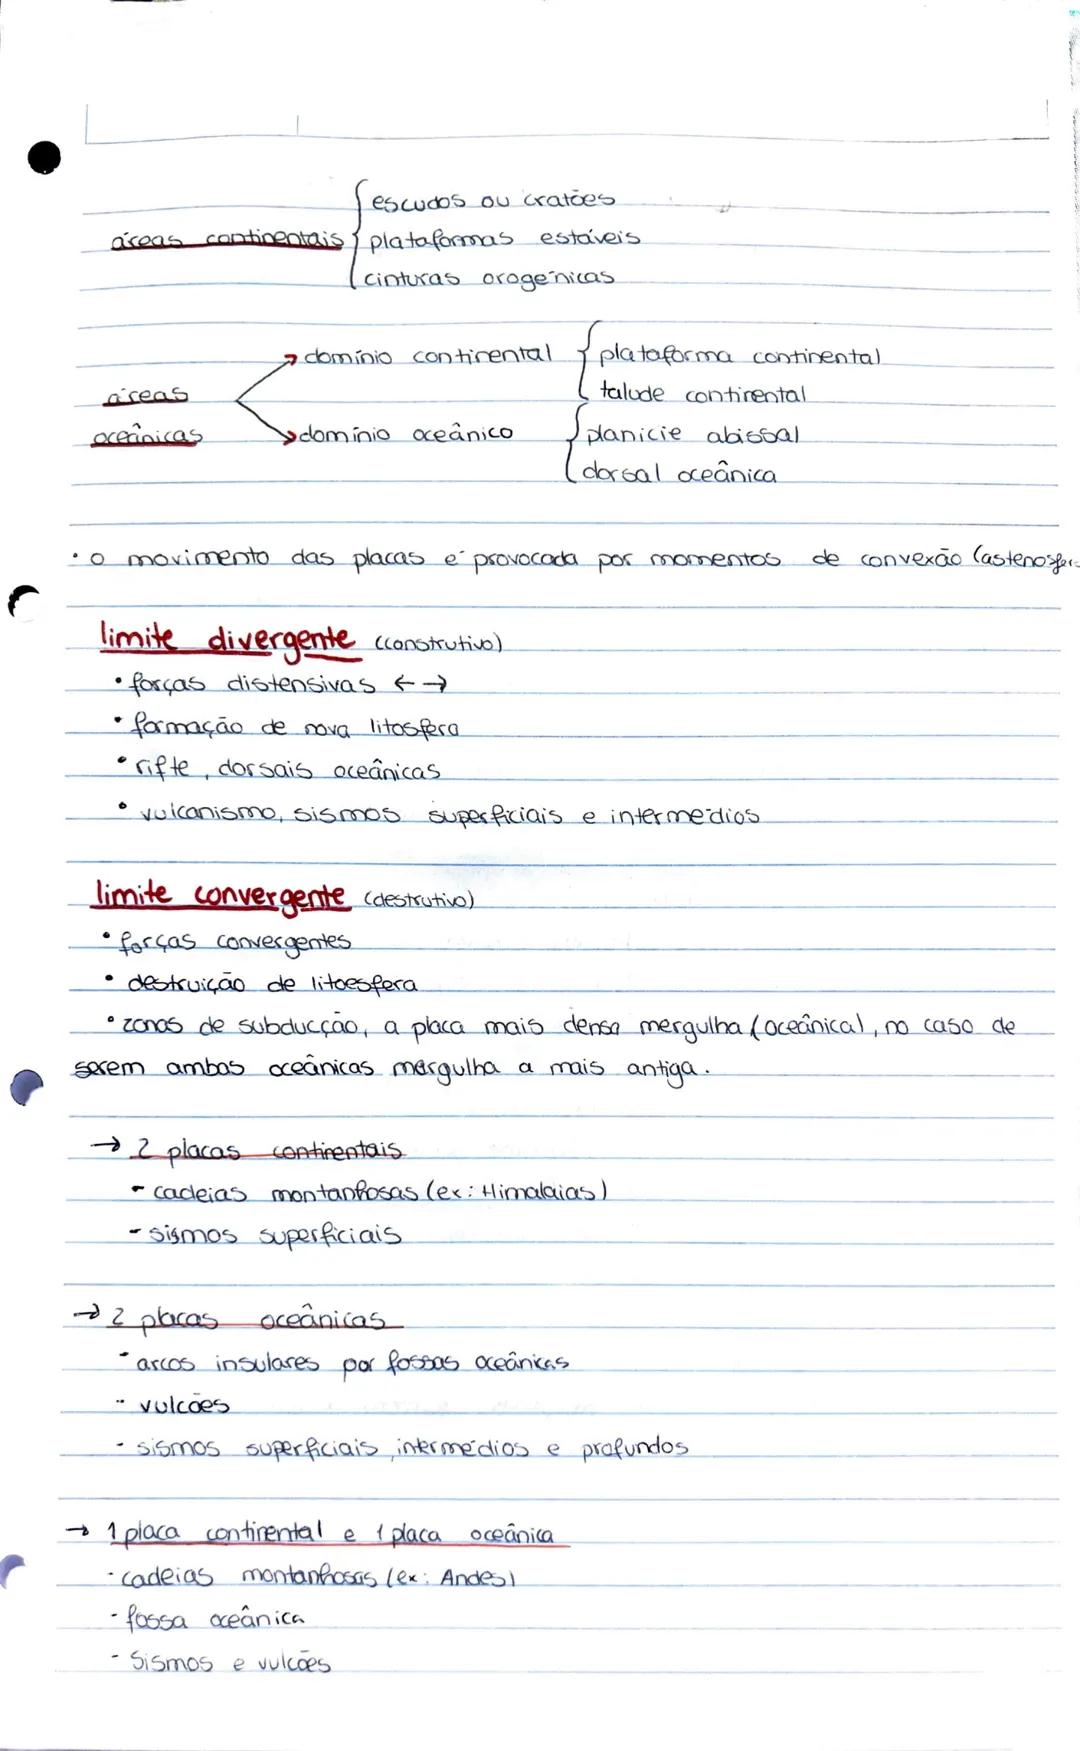 escudos ou cratões
áreas continentais
plataformas estáveis
cinturas orogénicas
domínio continental
plataforma continental
talude continental
áreas
oceânicas
domínio oceânico
planicie abissal
dorsal oceânica
• o movimento das placas é provocada por momentos de convexão (astenosfer
limite divergente (construtivo)
• forças distensivas ← →
• formação de nova litosfera
• rifte, dorsais oceânicas
• vulcanismo, sismos superficiais e intermédios
limite convergente (destrutivo)
• forças convergentes
• destruição de litoesfera
• zonas de subducção, a placa mais densa mergulha (oceânica), no caso de
serem ambas oceânicas mergulha a mais antiga.
→ 2 placas continentais
- cadeias montanhosas (ex: Himalaias)
- sismos superficiais
→ 2 placas oceânicas
- arcos insulares por fossas oceânicas
- vulcões
- sismos superficiais, intermédios e profundos
→ 1 placa continental e 1 placa oceânica
- cadeias montanhosas (ex: Andes)
- fossa oceânica
- Sismos e vulcões